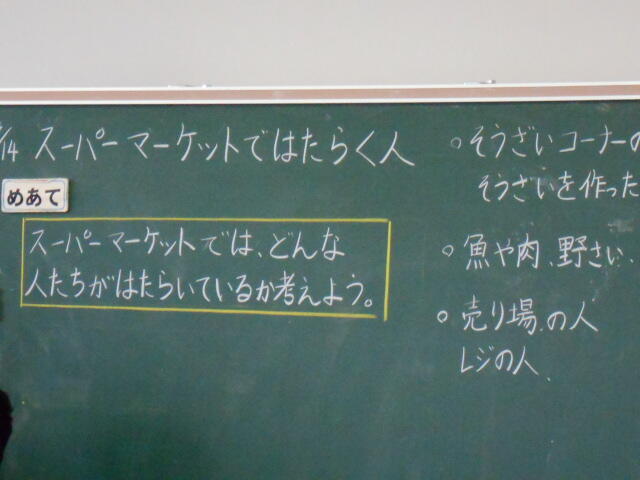 /14 スーパーマーケットではたらく人
めあて
スーパーマーケットでは、どんな
人たちがはたらいているか考えよう。
○そうざいコーナーの
そうざいを作った
○魚や肉、野さい、
○売り場の人
レジの人